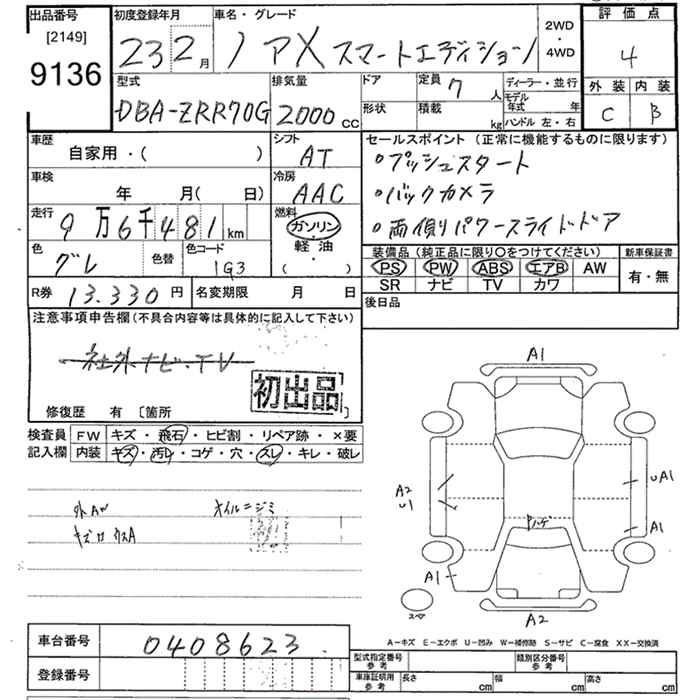 出品番号 初度登録年月 車名・グレード 2WD・4WD 評価点
[2149]
9136 23 2月 ノア X スマートエディション 4
型式 排気量 ドア 定員 7人 ディーラー・並行 外装 内装
DBA-ZRR70G 2000cc 形状 積載 kg モデル年式 年 C B
ハンドル 左・右
車歴 シフト セールスポイント (正常に機能するものに限ります)
自家用・( ) AT ・プッシュスタート
車検 冷房
年 月( 日) AAC ・バックカメラ
走行 燃料
9万6千481km ガソリン・軽油・( ) ・両側パワースライドドア
色 色替 色コード 装備品 (純正品に限り〇をつけてください) 新車保証書
グレ 1G3 PS PW ABS エアB AW 有・無
R券 13.330円 名変期限 月 日 SR ナビ TV カワ
注意事項申告欄(不具合内容等は具体的に記入して下さい) 後日品
社外ナビ・TV
初出品
修復歴 有 [箇所 ]
検査員 FW キズ・飛石・ヒビ割・リペア跡・×要
記入欄 内装 キズ・汚レ・コゲ・穴・スレ・キレ・破レ
A1
A2 U1
UA1
A1
A1
A2
外AW オイルニジミ
スペア
A-キズ E-エクボ U-凹み W-補修跡 S-サビ C-腐食 XX-交換済
車台番号 0408623
登録番号
型式指定番号 参考 類別区分番号 参考
車庫証明用 参考 長さ cm 幅 cm 高さ cm